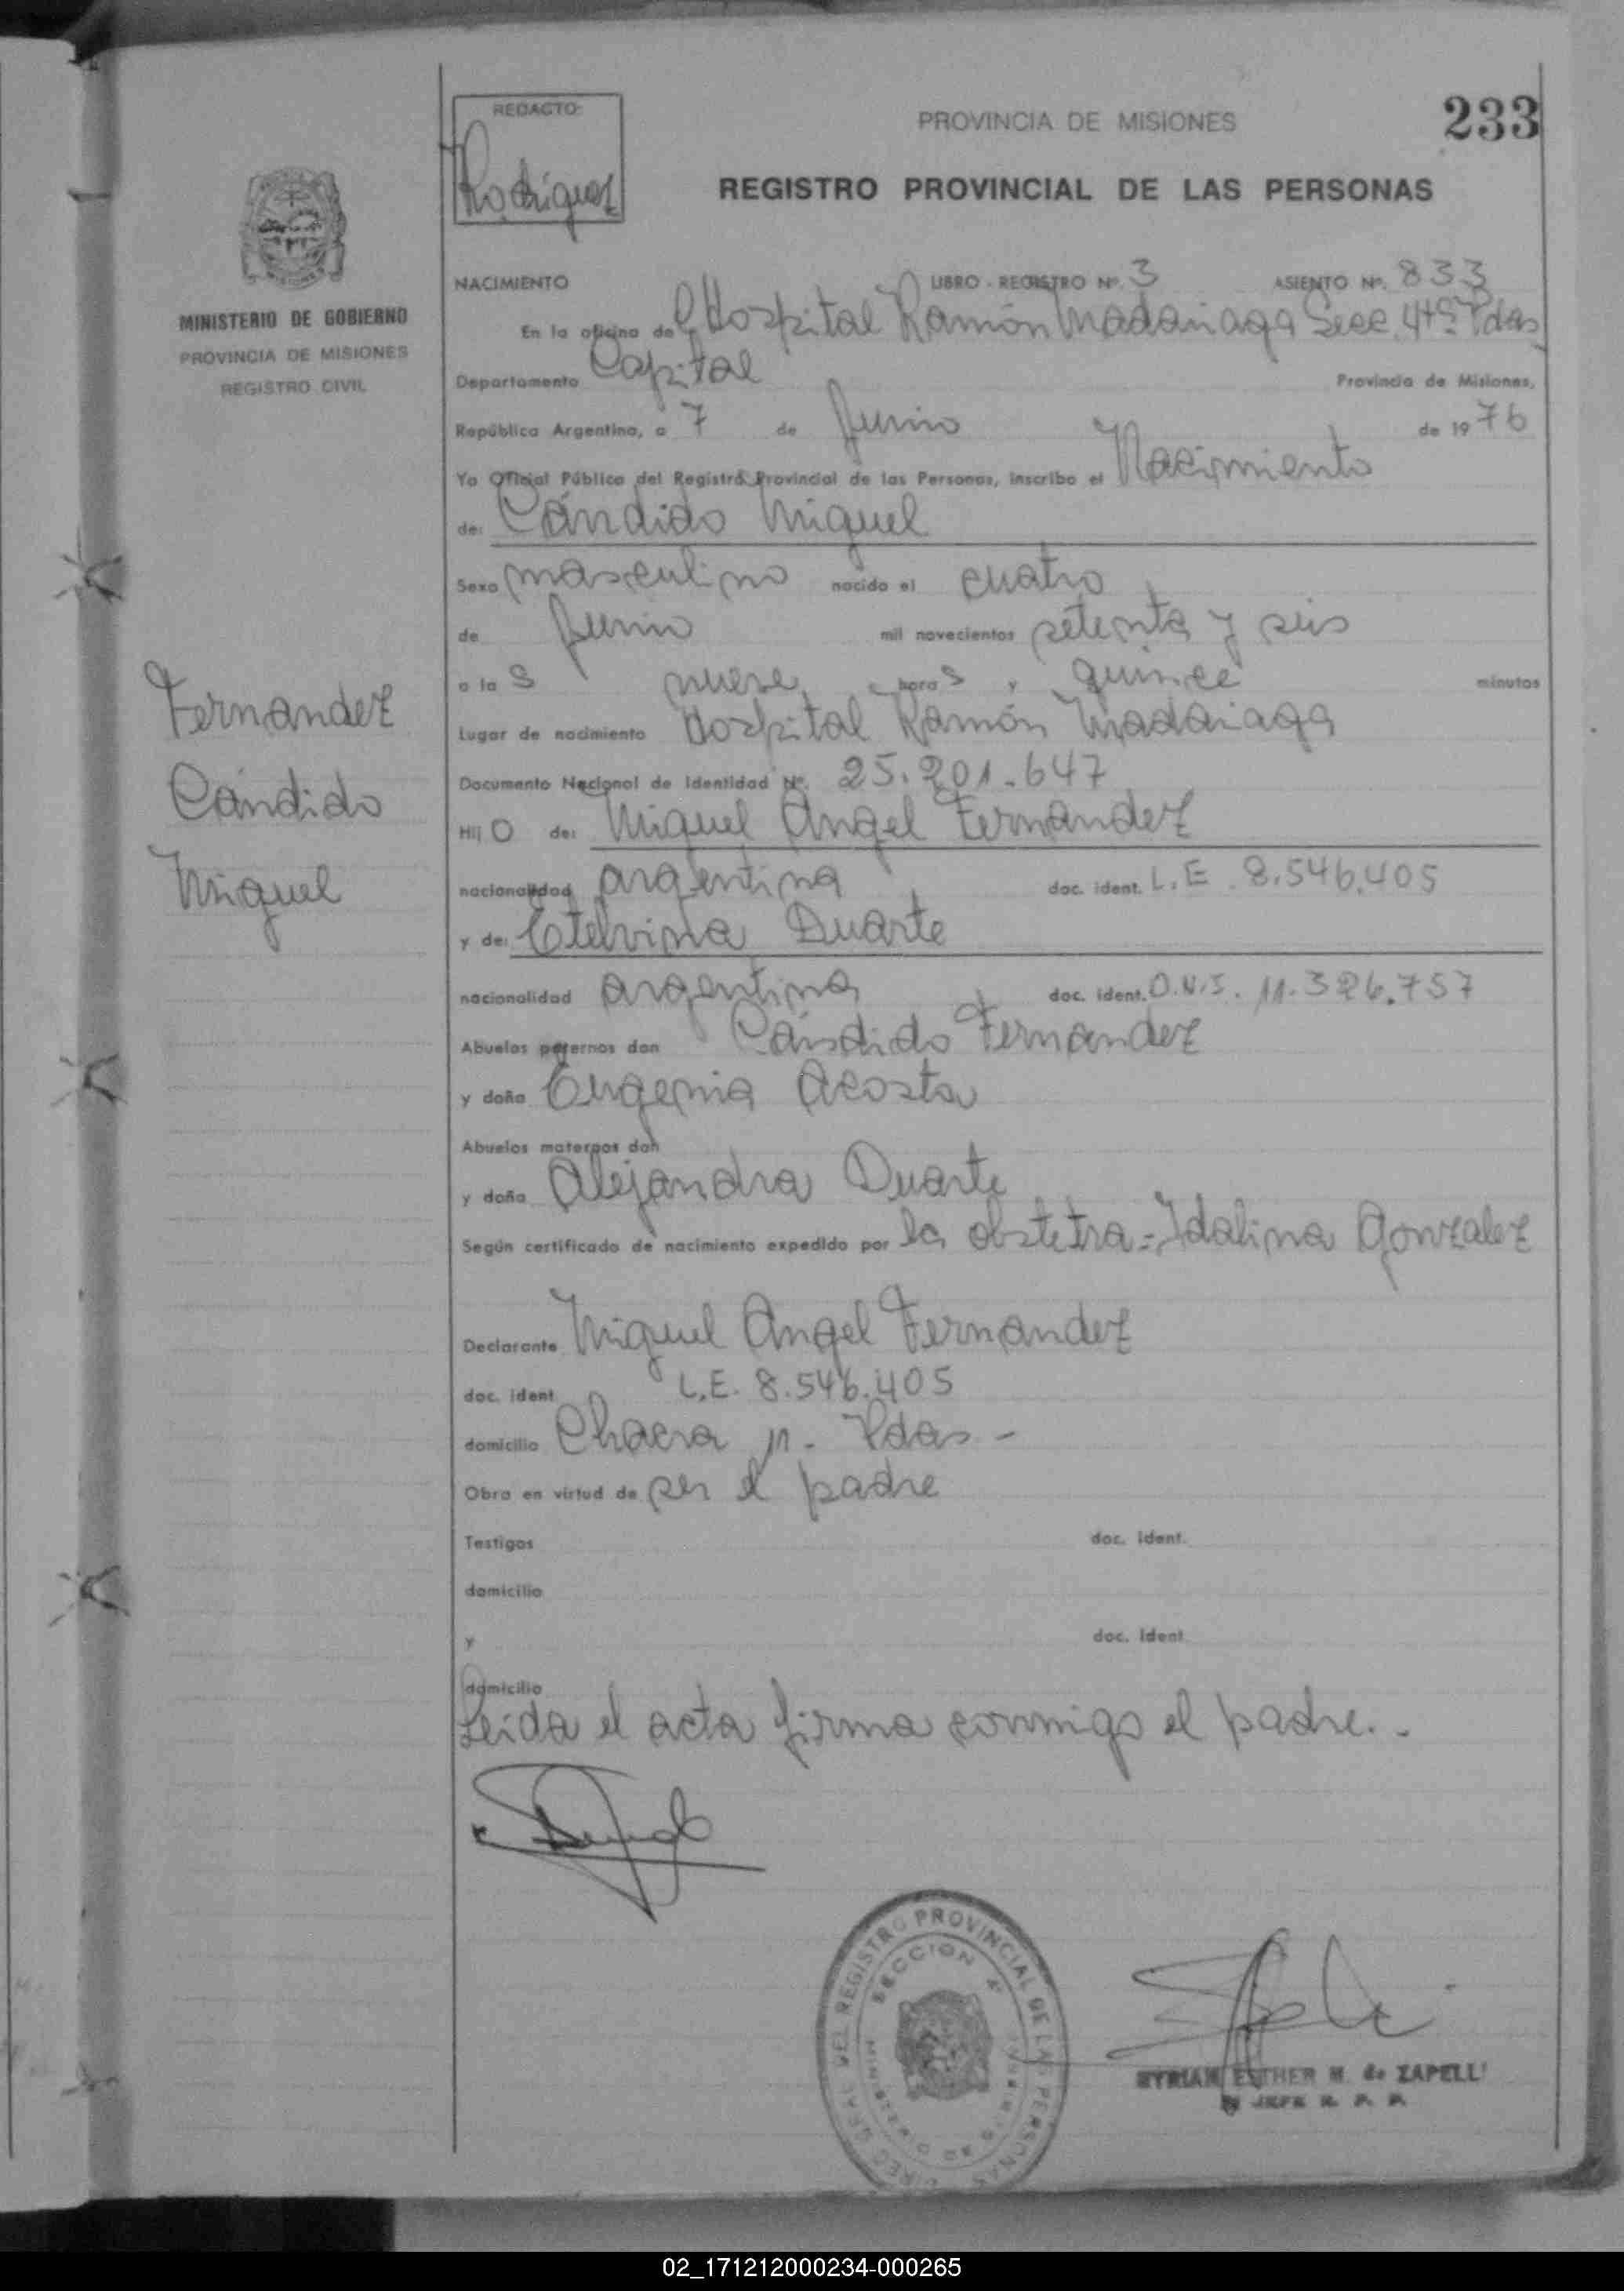 233
REDACTO:
Rodriguez
PROVINCIA DE MISIONES
REGISTRO PROVINCIAL DE LAS PERSONAS
MINISTERIO DE GOBIERNO
PROVINCIA DE MISIONES
REGISTRO CIVIL
NACIMIENTO LIBRO - REGISTRO Nº. 3 ASIENTO Nº. 833
En la oficina del Hospital Ramón Madariaga Secc. 4ta Pdas
Departamento Capital Provincia de Misiones,
República Argentina, a 7 de Junio de 1976
Yo Oficial Público del Registro Provincial de las Personas, inscribo el Nacimiento
de: Cándido Miguel
Sexo masculino nacido el cuatro
de Junio mil novecientos setenta y seis
a las nueve horas y quince minutos
Lugar de nacimiento Hospital Ramón Madariaga
Documento Nacional de Identidad Nº. 25.201.647
Hijo de: Miguel Angel Fernandez
nacionalidad argentina doc. ident. L.E. 8.546.405
y de: Etelvina Duarte
nacionalidad argentina doc. ident. D.N.I. 11.326.757
Abuelos paternos don Cándido Fernandez
y doña Eugenia Acosta
Abuelos maternos don
y doña Alejandra Duarte
Según certificado de nacimiento expedido por la obstetra=Idalina Gonzalez
Declarante Miguel Angel Fernandez
doc. ident. L.E. 8.546.405
domicilio Chacra 11 - Pdas -
Obra en virtud de ser el padre
Testigos doc. ident.
domicilio
y doc. ident.
domicilio
Leida el acta firma conmigo el padre. -
Fernandez
Cándido
Miguel
DIREC. GRAL. DEL REGISTRO PROVINCIAL DE LAS PERSONAS
SECCION 4ª
MINISTERIO DE GOBIERNO
MYRIAM ESTHER M. de ZAPELLI
JEFE R. P. P.
02_171212000234-000265